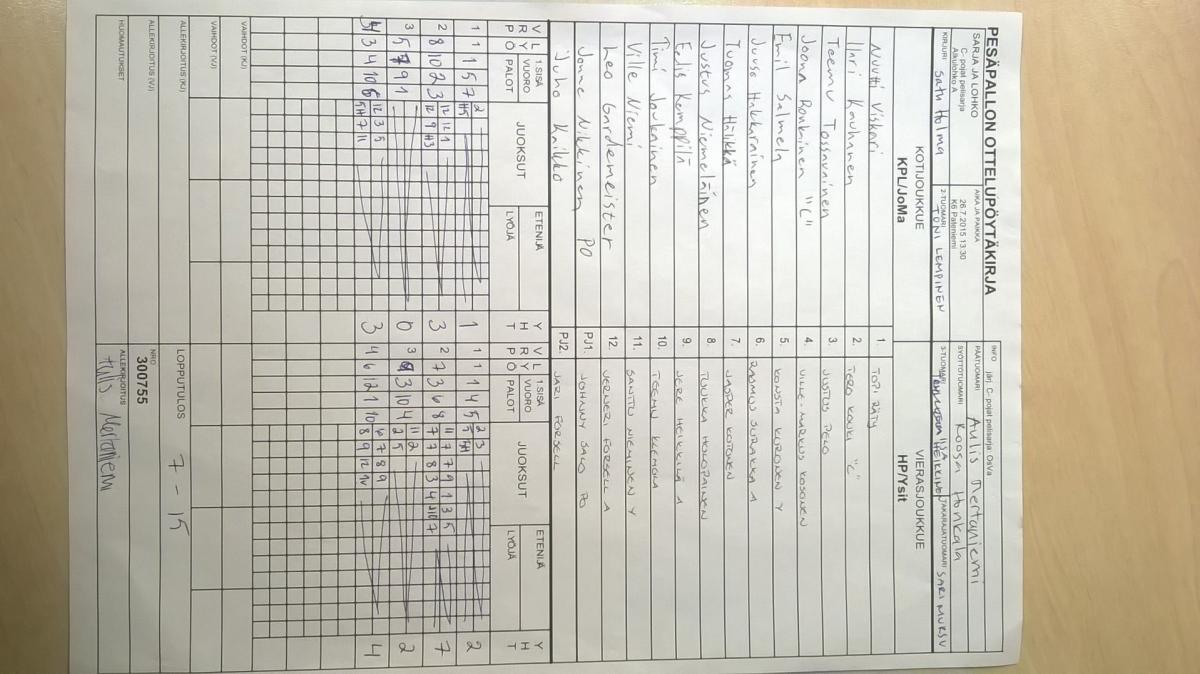 PESÄPALLON OTTELUPÖYTÄKIRJA
SARJA JA LOHKO
C-pojat pelisarja
Alkulohko A
AIKA JA PAIKKA
26.7.2015 13:30
K6 Paleniemi
INFO järj. C-pojat pelisarja: OsVa
PÄÄTUOMARI Aulis Mertaniemi
SYÖTTÖTUOMARI Roosa Honkala
KIRJURI Satu Holma
2-TUOMARI TONI LEMPINEN
3-TUOMARI
TAKARAJATUOMARI SARI MURSU
KOTIJOUKKUE
KPL/JoMa
VIERASJOUKKUE
HP/Ysit
Nuutti Viskari 1. TOPI RÄTY
Ilari Kauhanen 2. TERO KOUKI "C"
Teemu Tossavainen 3. JUSTUS PELO
Joona Ronkainen "C" 4. VILLE-MARKUS KOSONEN
Emil Salmela 5. KONSTA KORONEN Y
Juuso Hakkarainen 6. RASMUS SURAKKA A
Tuomas Hälikkä 7. JASPER KOTONEN
Justus Niemeläinen 8. TUUKKA HOLOPAINEN
Eelis Kemppilä 9. JERE HEIKKILÄ A
Timi Joukainen 10. TEEMU KLEMOLA
Ville Niemi 11. SANTTU NIEMINEN Y
Leo Gardemeister 12. VERNERI FORSELL A
Jonne Nikkinen PO PJ1. JOHNNY SALO PO
Juho Kaikko PJ2. JARI FORSELL
V L 1.SISÄ JUOKSUT ETENIJÄ Y V L 1.SISÄ JUOKSUT ETENIJÄ Y
R Y VUORO H R Y VUORO H
P Ö PALOT LYÖJÄ T P Ö PALOT LYÖJÄ T
1 1 1 5 7 2 1 1 1 1 4 5 2 3 2
2 8 10 2 3 12 12 1 3 2 7 3 6 8 11 7 7 9 1 3 5 7
12 9 H3 7 7 8 3 4 7
3 5 7 9 1 0 3 9 3 10 4 11 2 2
2 5
3 4 10 6 12 3 5 3 4 6 12 1 10 6 7 8 9 4
5 H 7 11 8 9 12 1V
VAIHDOT (KJ)
VAIHDOT (VJ)
ALLEKIRJOITUS (KJ)
LOPPUTULOS 7 - 15
ALLEKIRJOITUS (VJ)
NRO
300755
HUOMAUTUKSET
ALLEKIRJOITUS
Aulis Mertaniemi